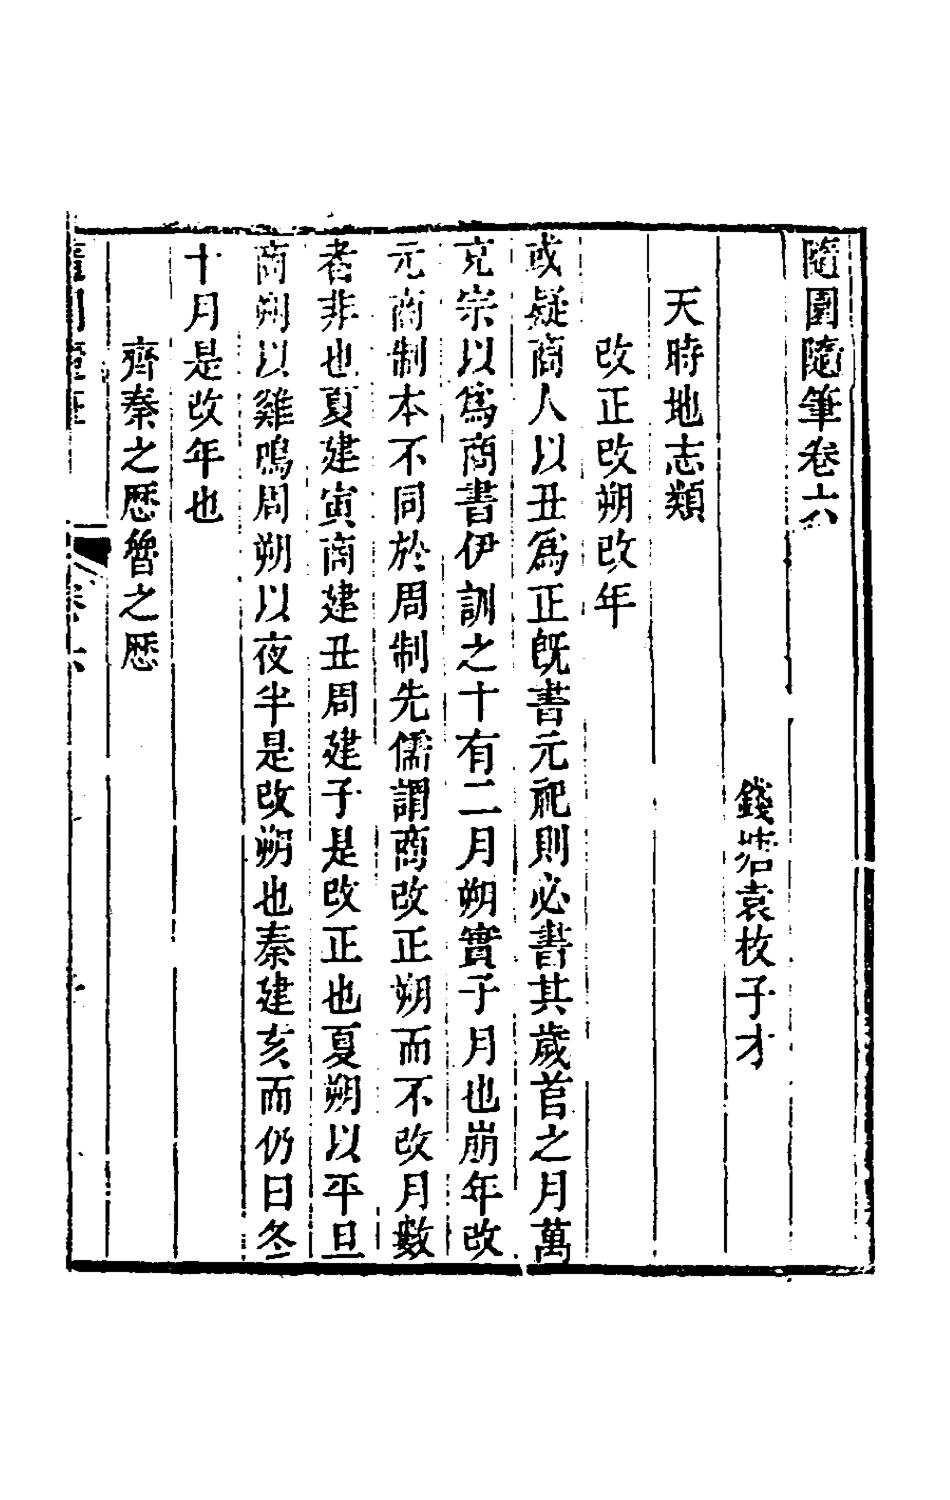 隨園隨筆卷六
錢塘袁枚子才
天時地志類
改正改朔改年
或疑商人以丑爲正旣書元祀則必書其歲首之月萬
充宗以爲商書伊訓之十有二月朔實子月也崩年改
元商制本不同於周制先儒謂商改正朔而不改月數
者非也夏建寅商建丑周建子是改正也夏朔以平旦
商朔以雞鳴周朔以夜半是改朔也秦建亥而仍曰冬
十月是改年也
齊秦之歷魯之歷
隨園隨筆 卷六